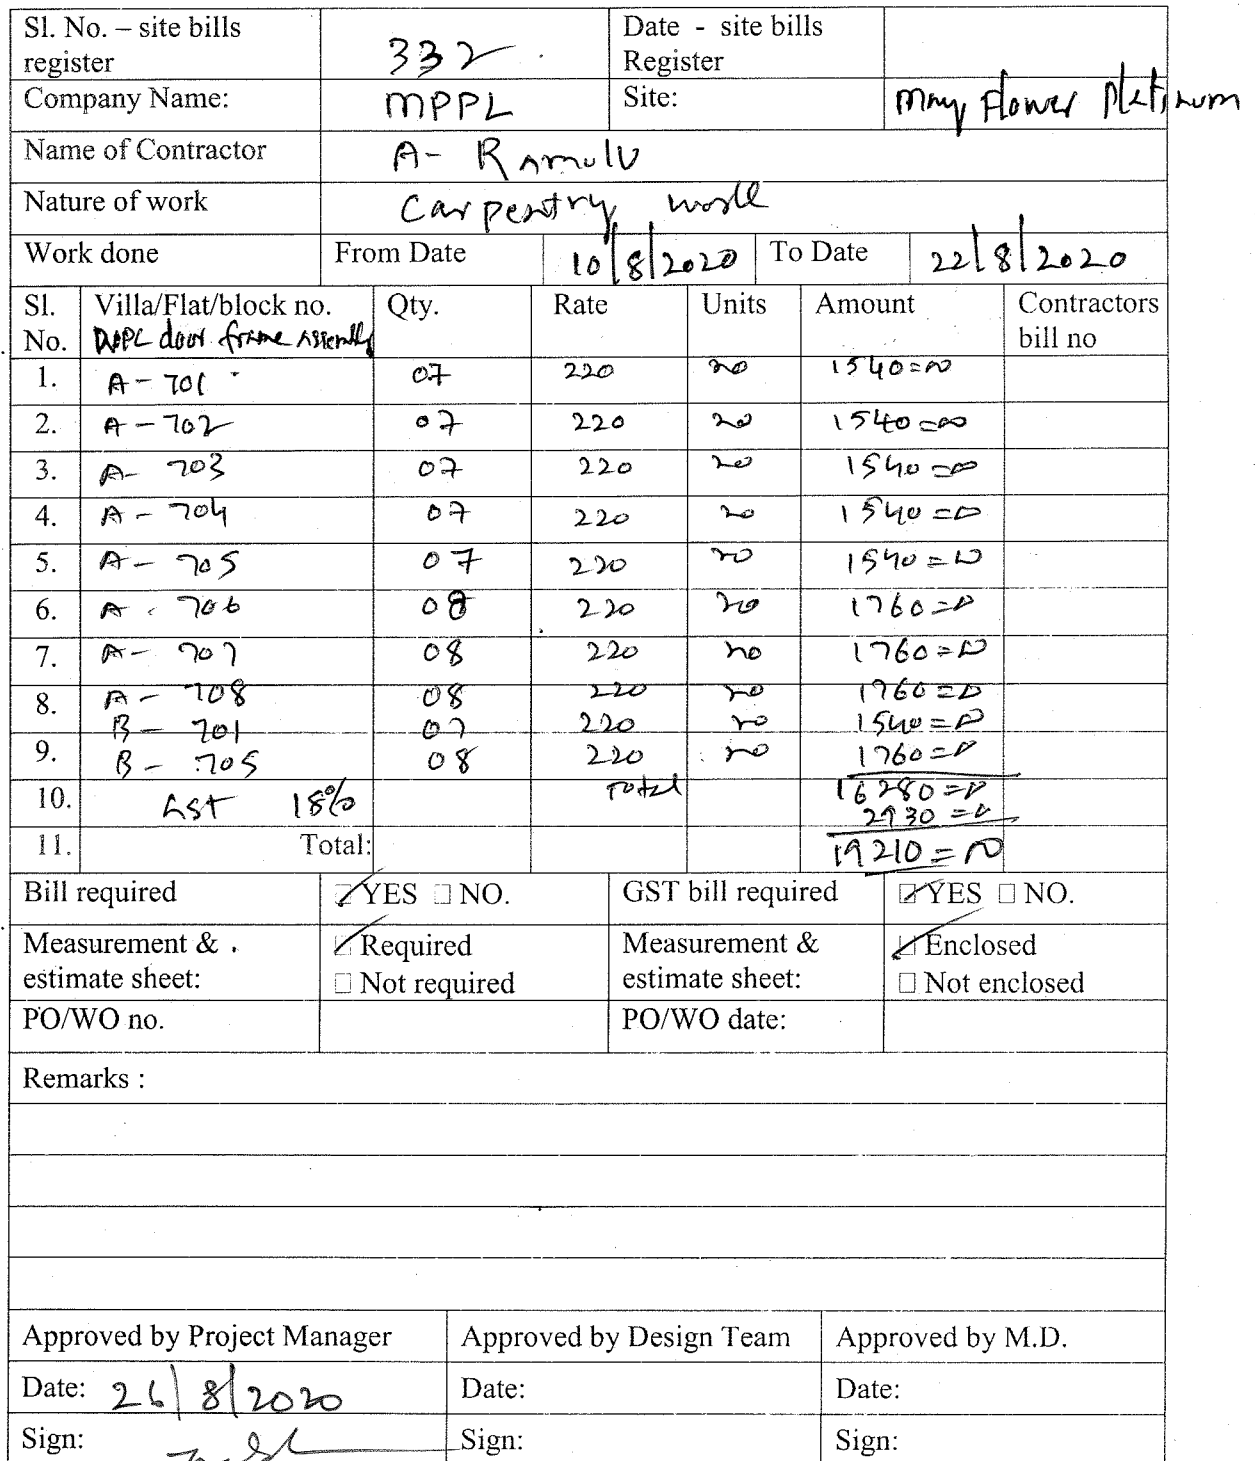 Sl. No. – site bills register 332 Date - site bills Register
Company Name: MPPL Site: May Flower Platinum
Name of Contractor A- Ramulu
Nature of work Carpentry work
Work done From Date 10/8/2020 To Date 22/8/2020
Sl. No. Villa/Flat/block no. door frame Assembly Qty. Rate Units Amount Contractors bill no
1. A-701 07 220 no 1540=00
2. A-702 07 220 no 1540=00
3. A- 703 07 220 no 1540=00
4. A-704 07 220 no 1540=00
5. A-705 07 220 no 1540=00
6. A- 706 08 220 no 1760=00
7. A- 707 08 220 no 1760=00
8. A-708 08 220 no 1760=00
B-701 07 220 no 1540=00
9. B-705 08 220 no 1760=00
10. GST 18% Total 16280=00
2930=00
11. Total: 19210=00
Bill required YES NO. GST bill required YES NO.
Measurement & estimate sheet: Required Not required Measurement & estimate sheet: Enclosed Not enclosed
PO/WO no. PO/WO date:
Remarks :
Approved by Project Manager Approved by Design Team Approved by M.D.
Date: 26/8/2020 Date: Date:
Sign: Sign: Sign: